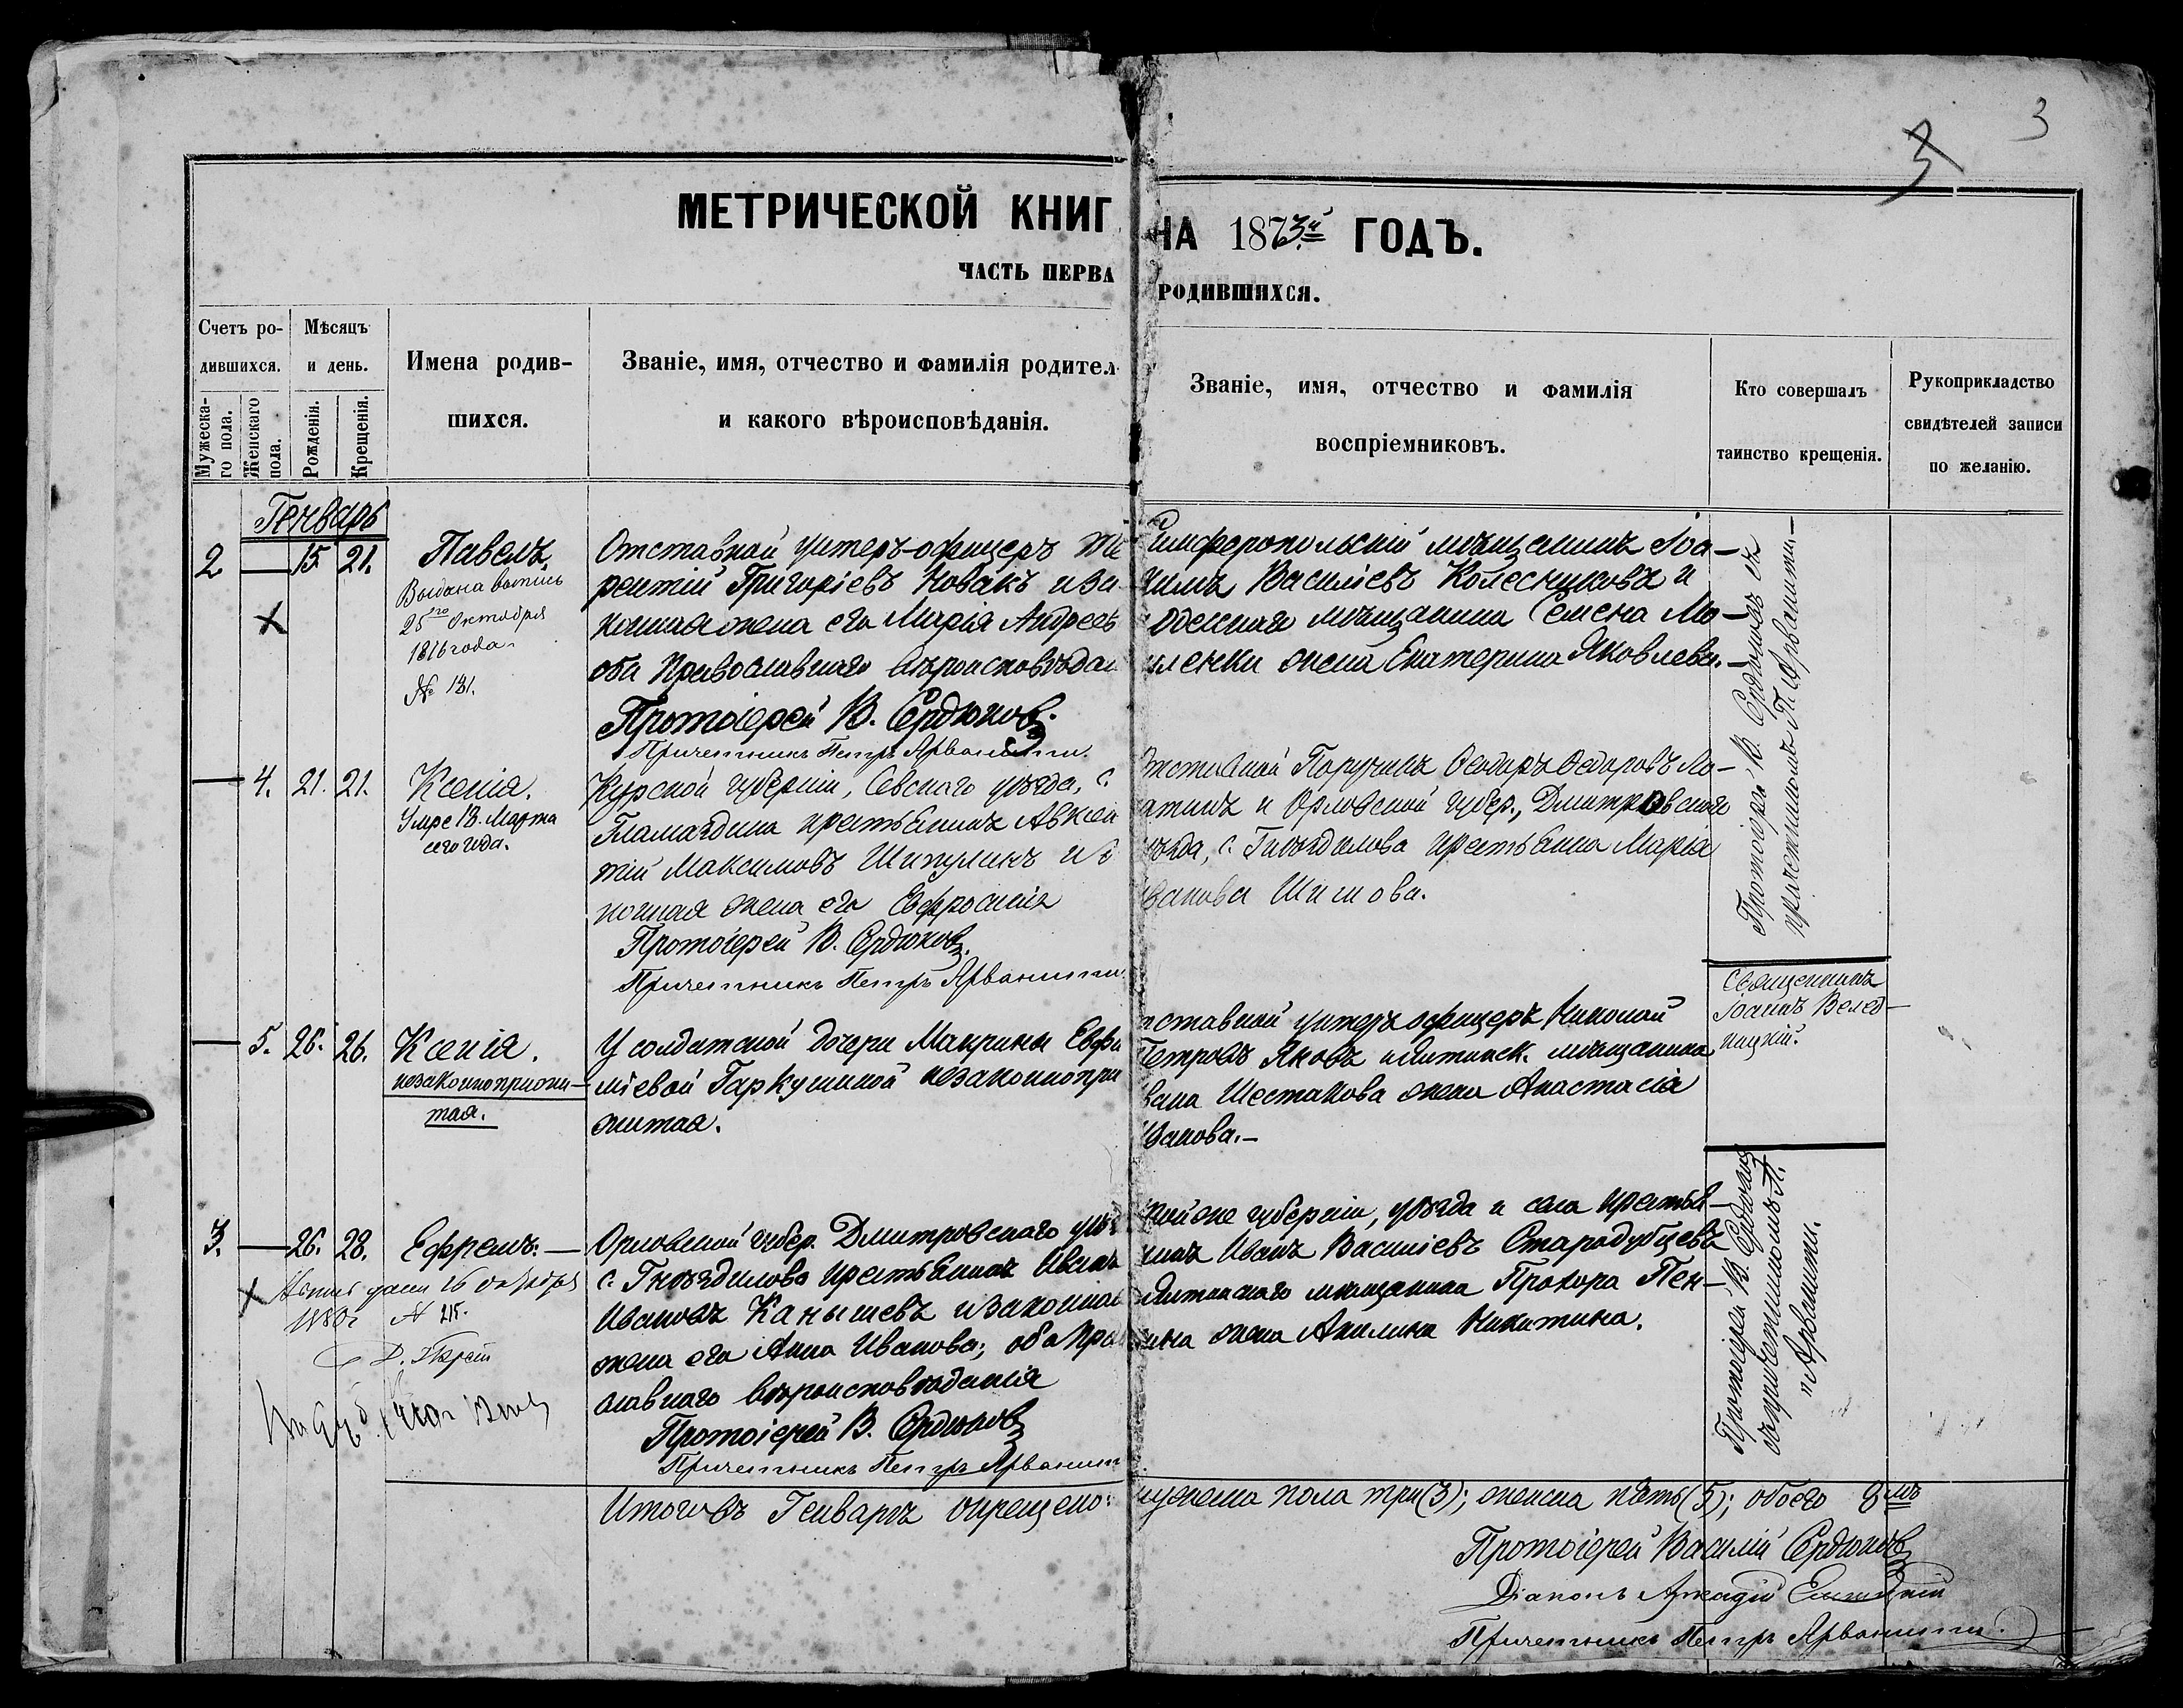 3
3
МЕТРИЧЕСКОЙ КНИГ
НА 1873й ГОДЪ.
ЧАСТЬ ПЕРВА
РОДИВШИХСЯ.
Счетъ ро-
дившихся.
Мужеска-
го пола.
Женскаго
пола.
Мѣсяцъ
и день.
Рожденія.
Крещенія.
Имена родив-
шихся.
Званіе, имя, отчество и фамилія родител
и какого вѣроисповѣданія.
Званіе, имя, отчество и фамилія
воспріемниковъ.
Кто совершалъ
таинство крещенія.
Рукоприкладство
свидѣтелей записи
по желанію.
Генварь
2 — 15. 21. Павелъ.
Выдана выпись
25го Октября
1816 года
№ 131.
Отставной унтеръ-офицеръ Те
рентій Григоріевъ Новакъ и за
конная жена его Марія Андрѣ
оба Православнаго вѣроисповѣдан
Протоіерей В. Сердюковъ.
Причетникъ Петръ Арванити.
Симферопольскій мѣщанинъ Іоа-
кимъ Василіевъ Колесниковъ и
одесскаго мѣщанина Семена Мо-
иленки жена Екатерина Яковлева.—
Протоіерей В. Сердюковъ съ
причетникомъ П. Арванити.—
— 4. 21. 21. Ксенія.
Умре 13. Марта
сего года.
Курской губерніи, Севскаго уѣзда, с.
крестьянинъ Авксен
тій Максимовъ Шипулинъ и з
конная жена его Евфросинія
Протоіерей В. Сердюковъ.
Причетникъ Петръ Арванити.
тставной Поручикъ Ѳеодоръ Ѳедоровъ Ло-
атинъ и Орловской губер., Дмитровскаго
уѣзда, с. Гнѣздилова крестьянка Марія
Иванова Шишова.
— 5. 26. 26. Ксенія.
незаконноприжи-
тая.
У солдатской дочери Макрины Евфи
міевой Гаркушиной незаконнопри
житая.
тставной унтеръ офицеръ Николай
Петровъ Яковъ и Ялтинск. мѣщанина
вана Шестакова жена Анастасія
Иванова.—
Священникъ
Іоаннъ Велед-
ницкій.
3. — 26. 28. Ефремъ.—
26 октября
1880г № 215.
Орловской губер. Дмитровскаго уѣз
с. Гнѣздилова крестьянинъ Иванъ
Ивановъ Канышевъ и законная
жена его Анна Иванова; оба Пра
славнаго вѣроисповѣданія
Протоіерей В. Сердюковъ
Причетникъ Петръ Арванити
кой же губерніи, уѣзда и села крестья-
нинъ Иванъ Василіевъ Стародубцевъ
и Ялтинскаго мѣщанина Прохора Пен-
кина жена Акилина Никитина.
Протоіерей В. Сердюковъ
съ причетникомъ П.
Арванити.
Итого въ Генварѣ окрещено:
мужеска пола три (3); женска пять (5); обоего 8мь
Протоіерей Василій Сердюковъ
Діаконъ Аркадій
Причетникъ Петръ Арванити.